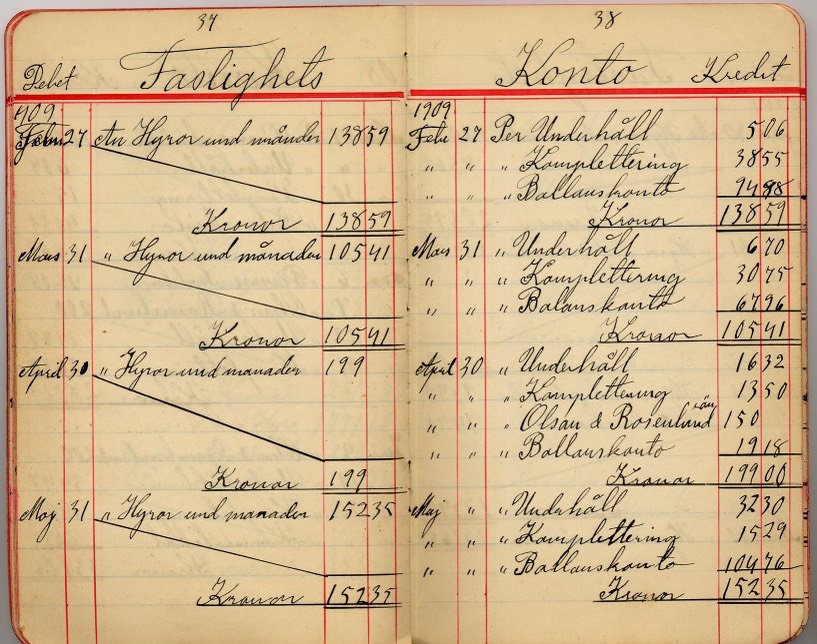 37
Debet Fastighets
1909
Febr 27 An Hyror und månader 138 59
Kronor 138 59
Mars 31 " Hyror und månader 105 41
Kronor 105 41
April 30 " Hyror und manader 199
Kronor 199
Maj 31 " Hyror und manader 152 35
Kronor 152 35
38
Konto Kredit
1909
Febr 27 Per Underhåll 5 06
" " " Komplettering 38 55
" " " Ballanskonto 94 98
Kronor 138 59
Mars 31 " Underhåll 6 70
" " " Komplettering 30 75
" " " Balanskonto 67 96
Kronor 105 41
April 30 " Underhåll 16 32
" " " Komplettering 13 50
" " " Olsan & Rosenlund 150
" " " Ballanskonto 19 18
Kronor 199 00
Maj " " Underhåll 32 30
" " " Komplettering 15 29
" " " Ballanskonto 104 76
Kronor 152 35